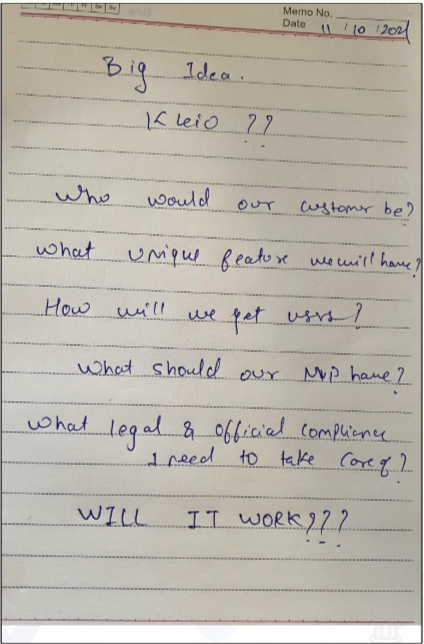 Memo No.
Date 11 / 10 / 2021
Big Idea.
Kleio ??
Who would our customer be?
What unique feature we will have?
How will we get users?
What should our MVP have?
What legal & official compliance
I need to take care of?
WILL IT WORK???